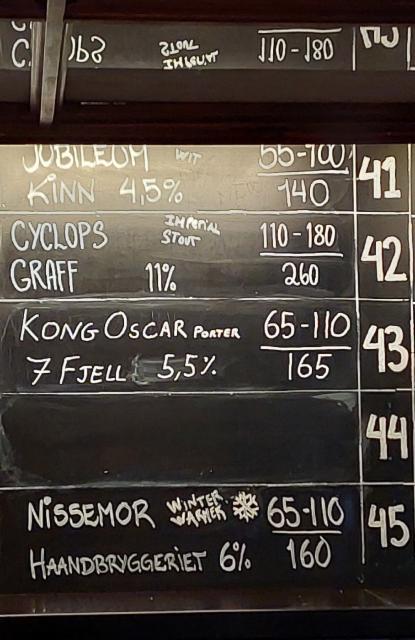 JUBILEUM WIT 55-100
KINN 4,5% 140 41
CYCLOPS IMPERIAL STOUT 110-180
GRAFF 11% 260 42
KONG OSCAR PORTER 65-110
7 FJELL 5,5% 165 43
44
NISSEMOR WINTER WARMER 65-110
HAANDBRYGGERIET 6% 160 45